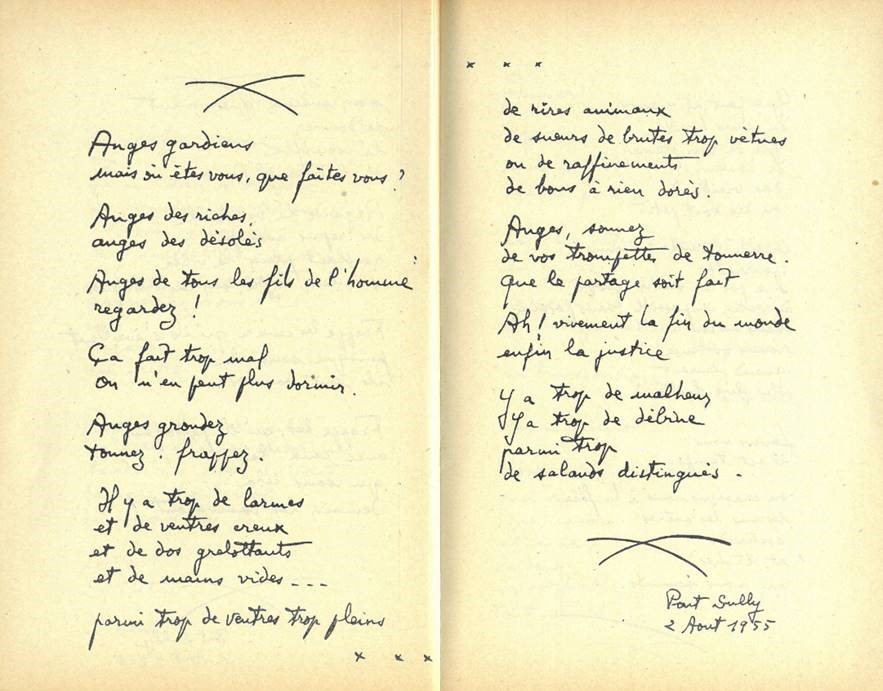 Anges gardiens
mais où êtes vous, que faites vous ?
Anges des riches,
anges des désolés
Anges de tous les fils de l'homme
regardez !
Ça fait trop mal
on n'en peut plus dormir.
Anges grondez
tonnez. frappez.
Il y a trop de larmes
et de ventres creux
et de dos grelottants
et de mains vides ---
parmi trop de ventres trop pleins
x x x
x x x
de rires animaux
de sueurs de brutes trop vêtues
ou de raffinements
de bons à rien dorés.
Anges, sonnez
de vos trompettes de tonnerre.
que le partage soit fait
Ah ! vivement la fin du monde
enfin la justice
Y a trop de malheur
Y a trop de débine
parmi trop
de salauds distingués -
Pont Sully
2 Aout 1955